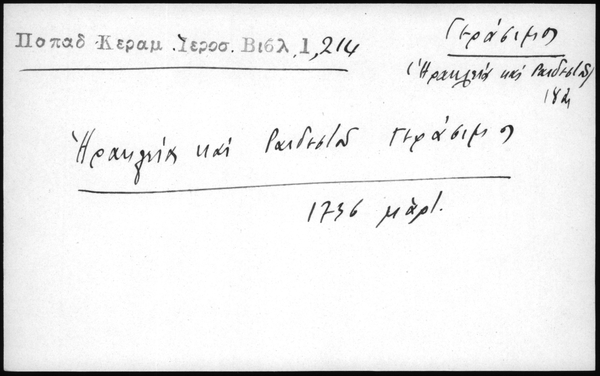 Παπαδ Κεραμ. Ἱεροσ. Βιβλ. 1, 214
Γεράσιμος
(Ἡρακλείας καὶ Ραιδεστοῦ)
Ἡρακλείας καὶ Ραιδεστοῦ Γεράσιμος
1736 μάρτ.